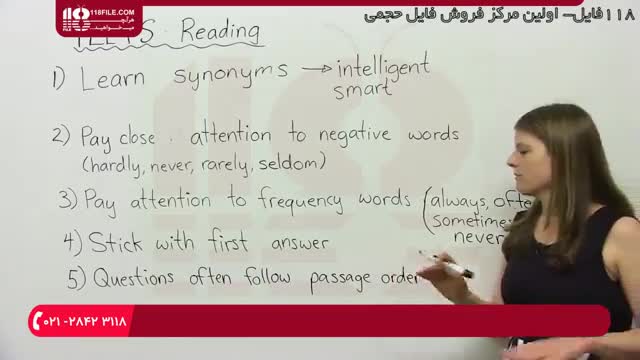 118FILE.COM
هرآنچه
میخواهید...
۱۱۸فایل– اولین مرکز فروش فایل حجمی
IELTS Reading
1) Learn synonyms → intelligent
smart
2) Pay close attention to negative words
(hardly, never, rarely, seldom)
3) Pay attention to frequency words (always, ofte
sometimes
never
4) Stick with first answer
5) Questions often follow passage order
۰۲۱- ۲۸۴۲ ۳۱۱۸